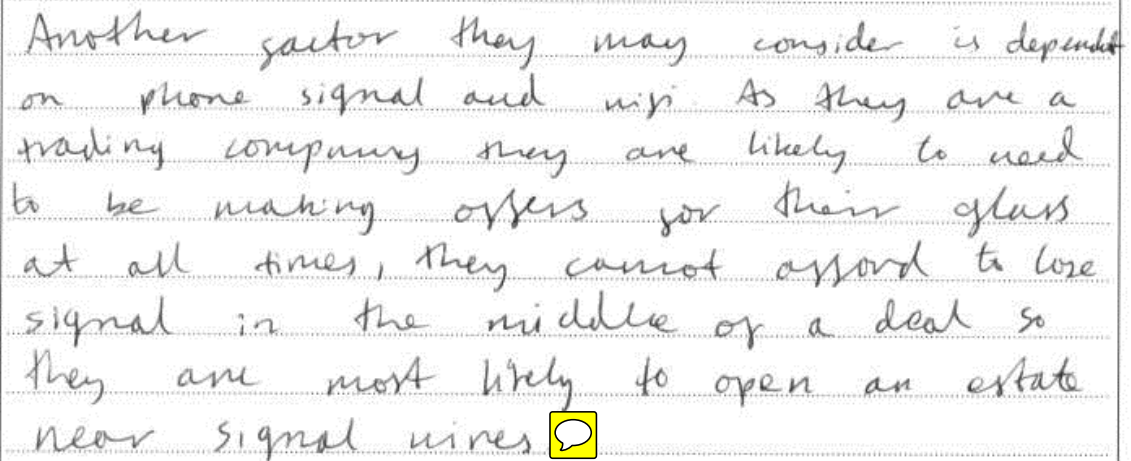 Another factor they may consider is dependent
on phone signal and wifi. As they are a
trading company they are likely to need
to be making offers for their glass
at all times, they cannot afford to lose
signal in the middle of a deal so
they are most likely to open an estate
near signal wires